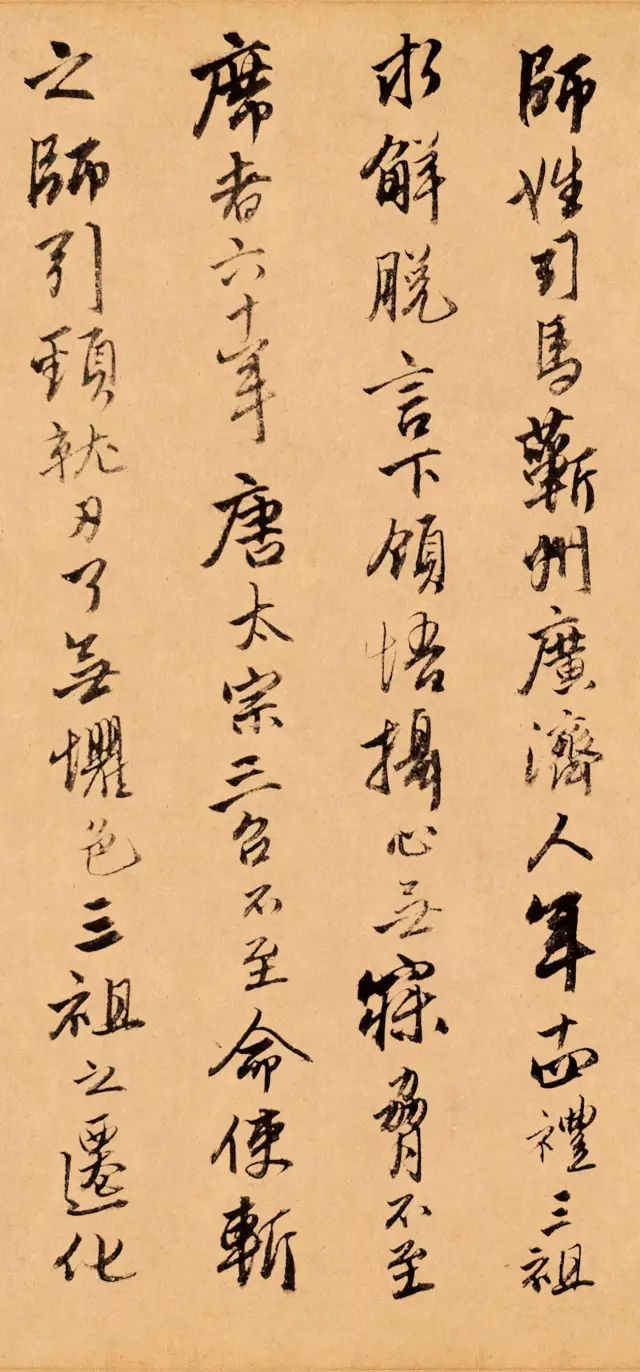 師姓司馬蘄州廣濟人年十四禮三祖
求解脫言下領悟攝心無寐脅不至
席者六十年唐太宗三召不至命使斬
之師引頸就刃了無懼色三祖之遷化